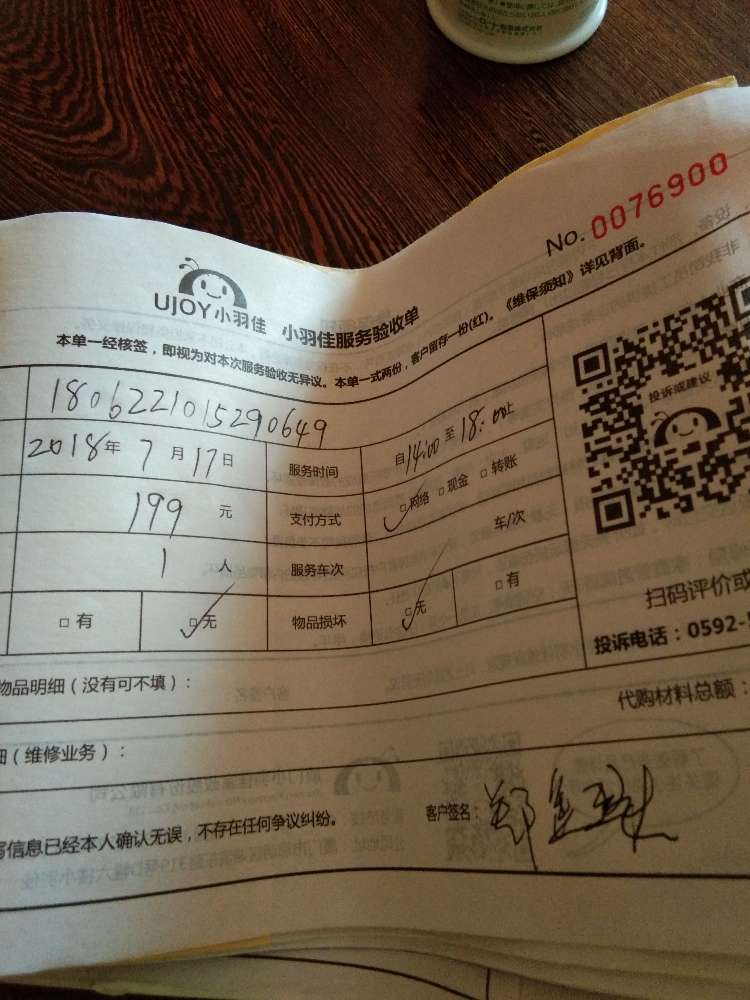 No. 0076900
UJOY小羽佳 小羽佳服务验收单
本单一经核签，即视为对本次服务验收无异议。本单一式两份，客户留存一份(红)。《维保须知》详见背面。
1806221015290649
2018年7月17日 服务时间 自14:00至18:00止
199 元 支付方式 □网络 □现金 □转账
1 人 服务车次 车/次
□有 □无 物品损坏 □无 □有
投诉或建议
扫码评价或
投诉电话：0592-
物品明细（没有可不填）：
代购材料总额：
细（维修业务）：
写信息已经本人确认无误，不存在任何争议纠纷。 客户签名：郑